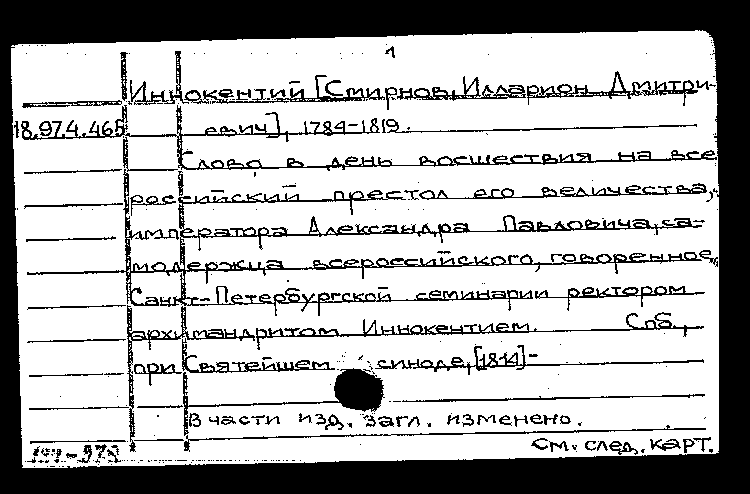 1
Иннокентий [Смирнов, Илларион Дмитри-
18.97.4.465 евич], 1784-1819.
Слово в день восшествия на все
российский престол его величества,
императора Александра Павловича, са-
модержца всероссийского, говоренное
Санкт-Петербургской семинарии ректором
архимандритом Иннокентием. Спб.,
при Святейшем синоде, [1814]-
В части изд. загл. изменено.
См. след. карт.